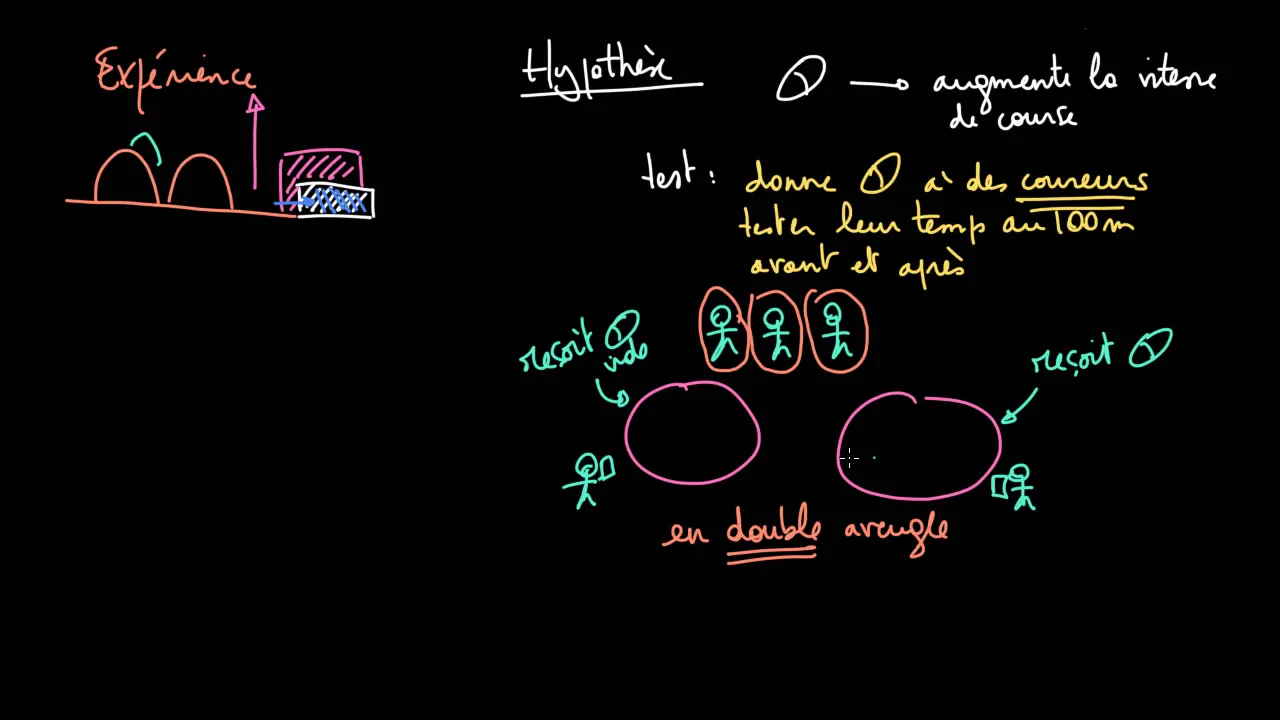 Expérience
Hypothèse
augmente la vitesse
de course
test : donne à des coureurs
tester leur temp au 100m
avant et après
reçoit
vide
reçoit
en double aveugle